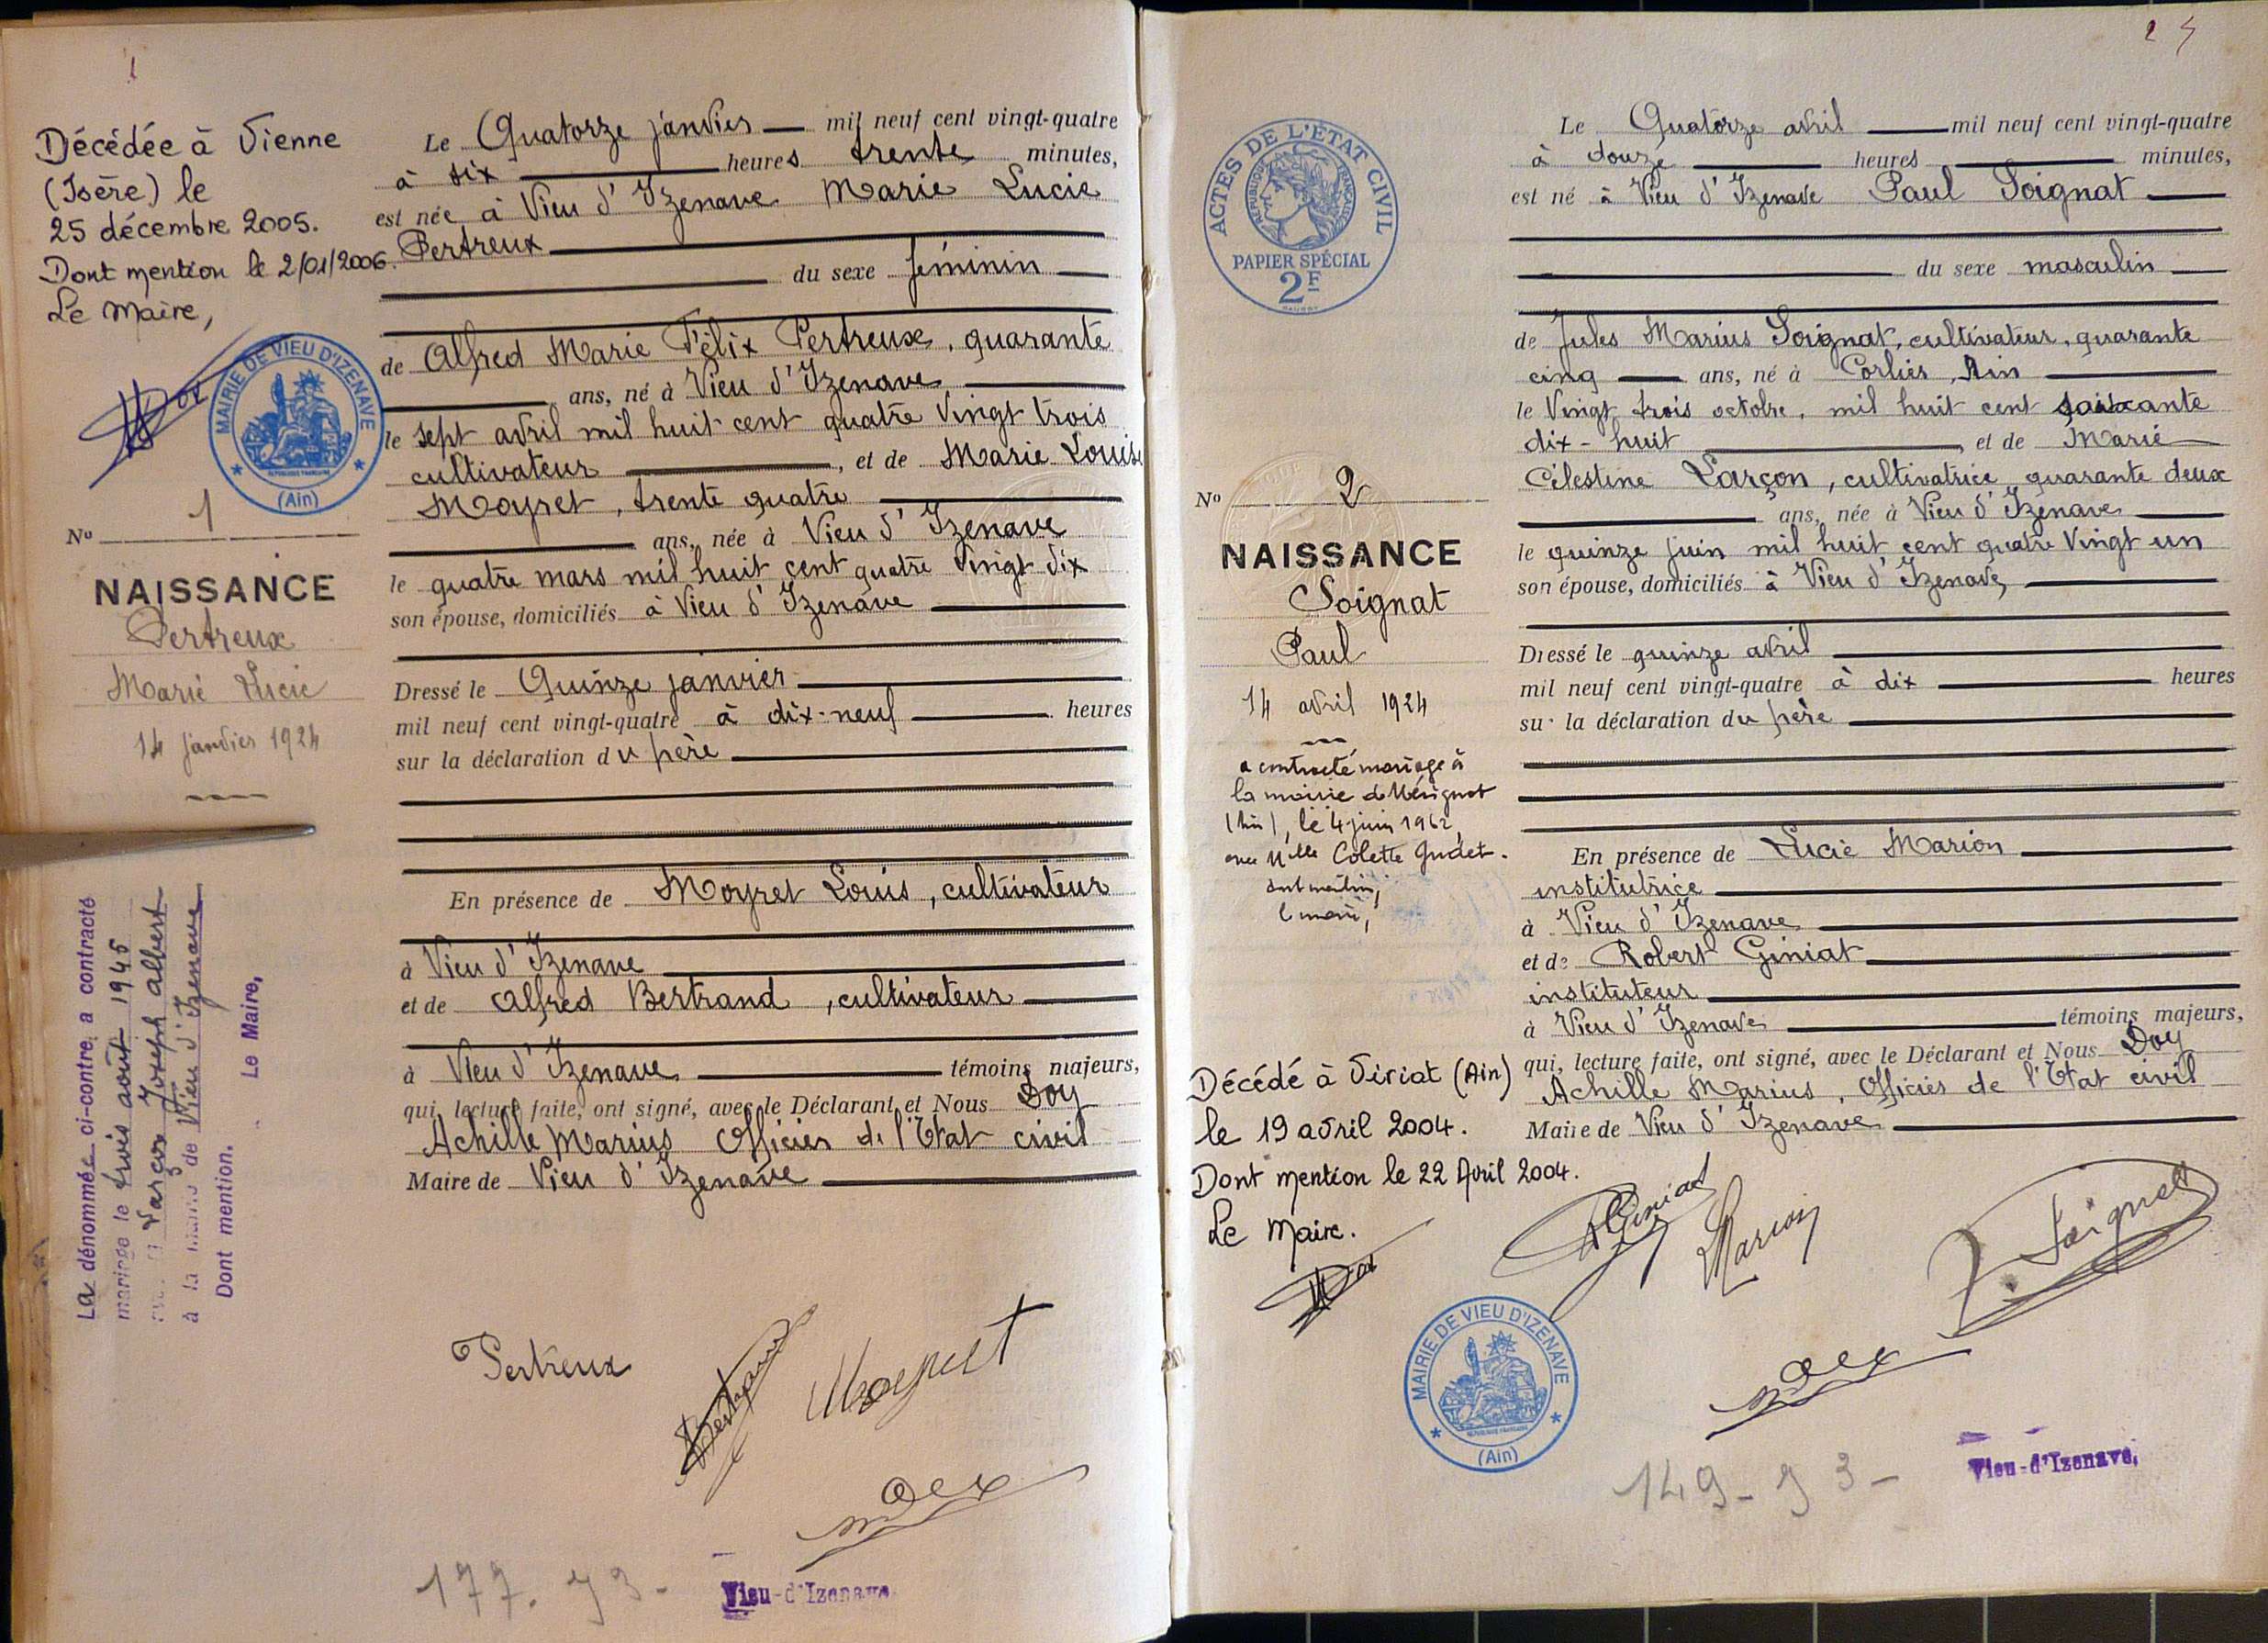 1
Décédée à Vienne
(Isère) le
25 décembre 2005.
Dont mention le 2/01/2006.
Le Maire,
MAIRIE DE VIEU D'IZENAVE
RÉPUBLIQUE FRANÇAISE
(Ain)
No 1
NAISSANCE
Pertreux
Marie Lucie
14 janvier 1924
La dénommée ci-contre, a contracté
mariage le trois août 1945
Larçon Joseph Albert
à la mairie de Vieu d'Izenave
Dont mention. Le Maire,
Le Quatorze janvier mil neuf cent vingt-quatre
à dix heures trente minutes,
est née à Vieu d'Izenave Marie Lucie
Pertreux
du sexe féminin
de Alfred Marie Félix Pertreux, quarante
ans, né à Vieu d'Izenave
le sept avril mil huit cent quatre vingt trois
cultivateur, et de Marie Louise
Moyret, trente quatre
ans, née à Vieu d'Izenave
le quatre mars mil huit cent quatre vingt dix
son épouse, domiciliés à Vieu d'Izenave
Dressé le Quinze janvier
mil neuf cent vingt-quatre à dix-neuf heures
sur la déclaration du père
En présence de Moyret Louis, cultivateur
à Vieu d'Izenave
et de Alfred Bertrand, cultivateur
à Vieu d'Izenave témoins majeurs,
qui, lecture faite, ont signé, avec le Déclarant et Nous Doy
Achille Marius Officier de l'Etat civil
Maire de Vieu d'Izenave
Pertreux
Bertrand
Moyret
Doy
177. 93-
Vieu-d'Izenave
2
ACTES DE L'ÉTAT CIVIL
RÉPUBLIQUE FRANÇAISE
PAPIER SPÉCIAL
2F
No 2
NAISSANCE
Soignat
Paul
14 avril 1924
a contracté mariage à
la mairie de Mérignat
(Ain), le 4 juin 1962,
avec Melle Colette Judet.
dont mention,
le maire,
Décédé à Viriat (Ain)
le 19 avril 2004.
Dont mention le 22 Avril 2004.
Le Maire.
MAIRIE DE VIEU D'IZENAVE
RÉPUBLIQUE FRANÇAISE
(Ain)
Le Quatorze avril mil neuf cent vingt-quatre
à douze heures minutes,
est né à Vieu d'Izenave Paul Soignat
du sexe masculin
de Jules Marius Soignat, cultivateur, quarante
cinq ans, né à Corlier, Ain
le Vingt trois octobre, mil huit cent soixante
dix-huit, et de Marie
Célestine Larçon, cultivatrice, quarante deux
ans, née à Vieu d'Izenave
le quinze juin mil huit cent quatre Vingt un
son épouse, domiciliés à Vieu d'Izenave,
Dressé le quinze avril
mil neuf cent vingt-quatre à dix heures
sur la déclaration du père
En présence de Lucie Marion
institutrice
à Vieu d'Izenave
et de Robert Giniat
instituteur
à Vieu d'Izenave témoins majeurs,
qui, lecture faite, ont signé, avec le Déclarant et Nous Doy
Achille Marius, Officier de l'Etat civil
Maire de Vieu d'Izenave
RGiniat
LMarion
J. Soignat
Doy
149-93-
Vieu-d'Izenave,